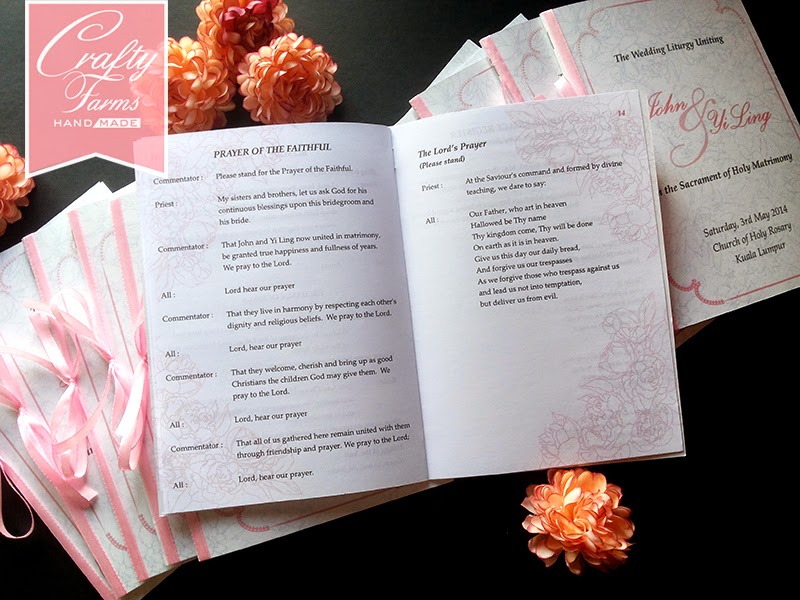 Crafty
Farms
HAND MADE
PRAYER OF THE FAITHFUL
Commentator : Please stand for the Prayer of the Faithful.
Priest : My sisters and brothers, let us ask God for his
continuous blessings upon this bridegroom and
his bride.
Commentator : That John and Yi Ling now united in matrimony,
be granted true happiness and fullness of years.
We pray to the Lord.
All : Lord hear our prayer
Commentator : That they live in harmony by respecting each other's
dignity and religious beliefs. We pray to the Lord.
All : Lord, hear our prayer
Commentator : That they welcome, cherish and bring up as good
Christians the children God may give them. We
pray to the Lord.
All : Lord, hear our prayer
Commentator : That all of us gathered here remain united with them
through friendship and prayer. We pray to the Lord;
All : Lord, hear our prayer.
14
The Lord's Prayer
(Please stand)
Priest : At the Saviour's command and formed by divine
teaching, we dare to say:
All : Our Father, who art in heaven
Hallowed be Thy name
Thy kingdom come, Thy will be done
On earth as it is in heaven.
Give us this day our daily bread,
And forgive us our trespasses
As we forgive those who trespass against us
and lead us not into temptation,
but deliver us from evil.
The Wedding Liturgy Uniting
John
&
Yi Ling
the Sacrament of Holy Matrimony
Saturday, 3rd May 2014
Church of Holy Rosary
Kuala Lumpur